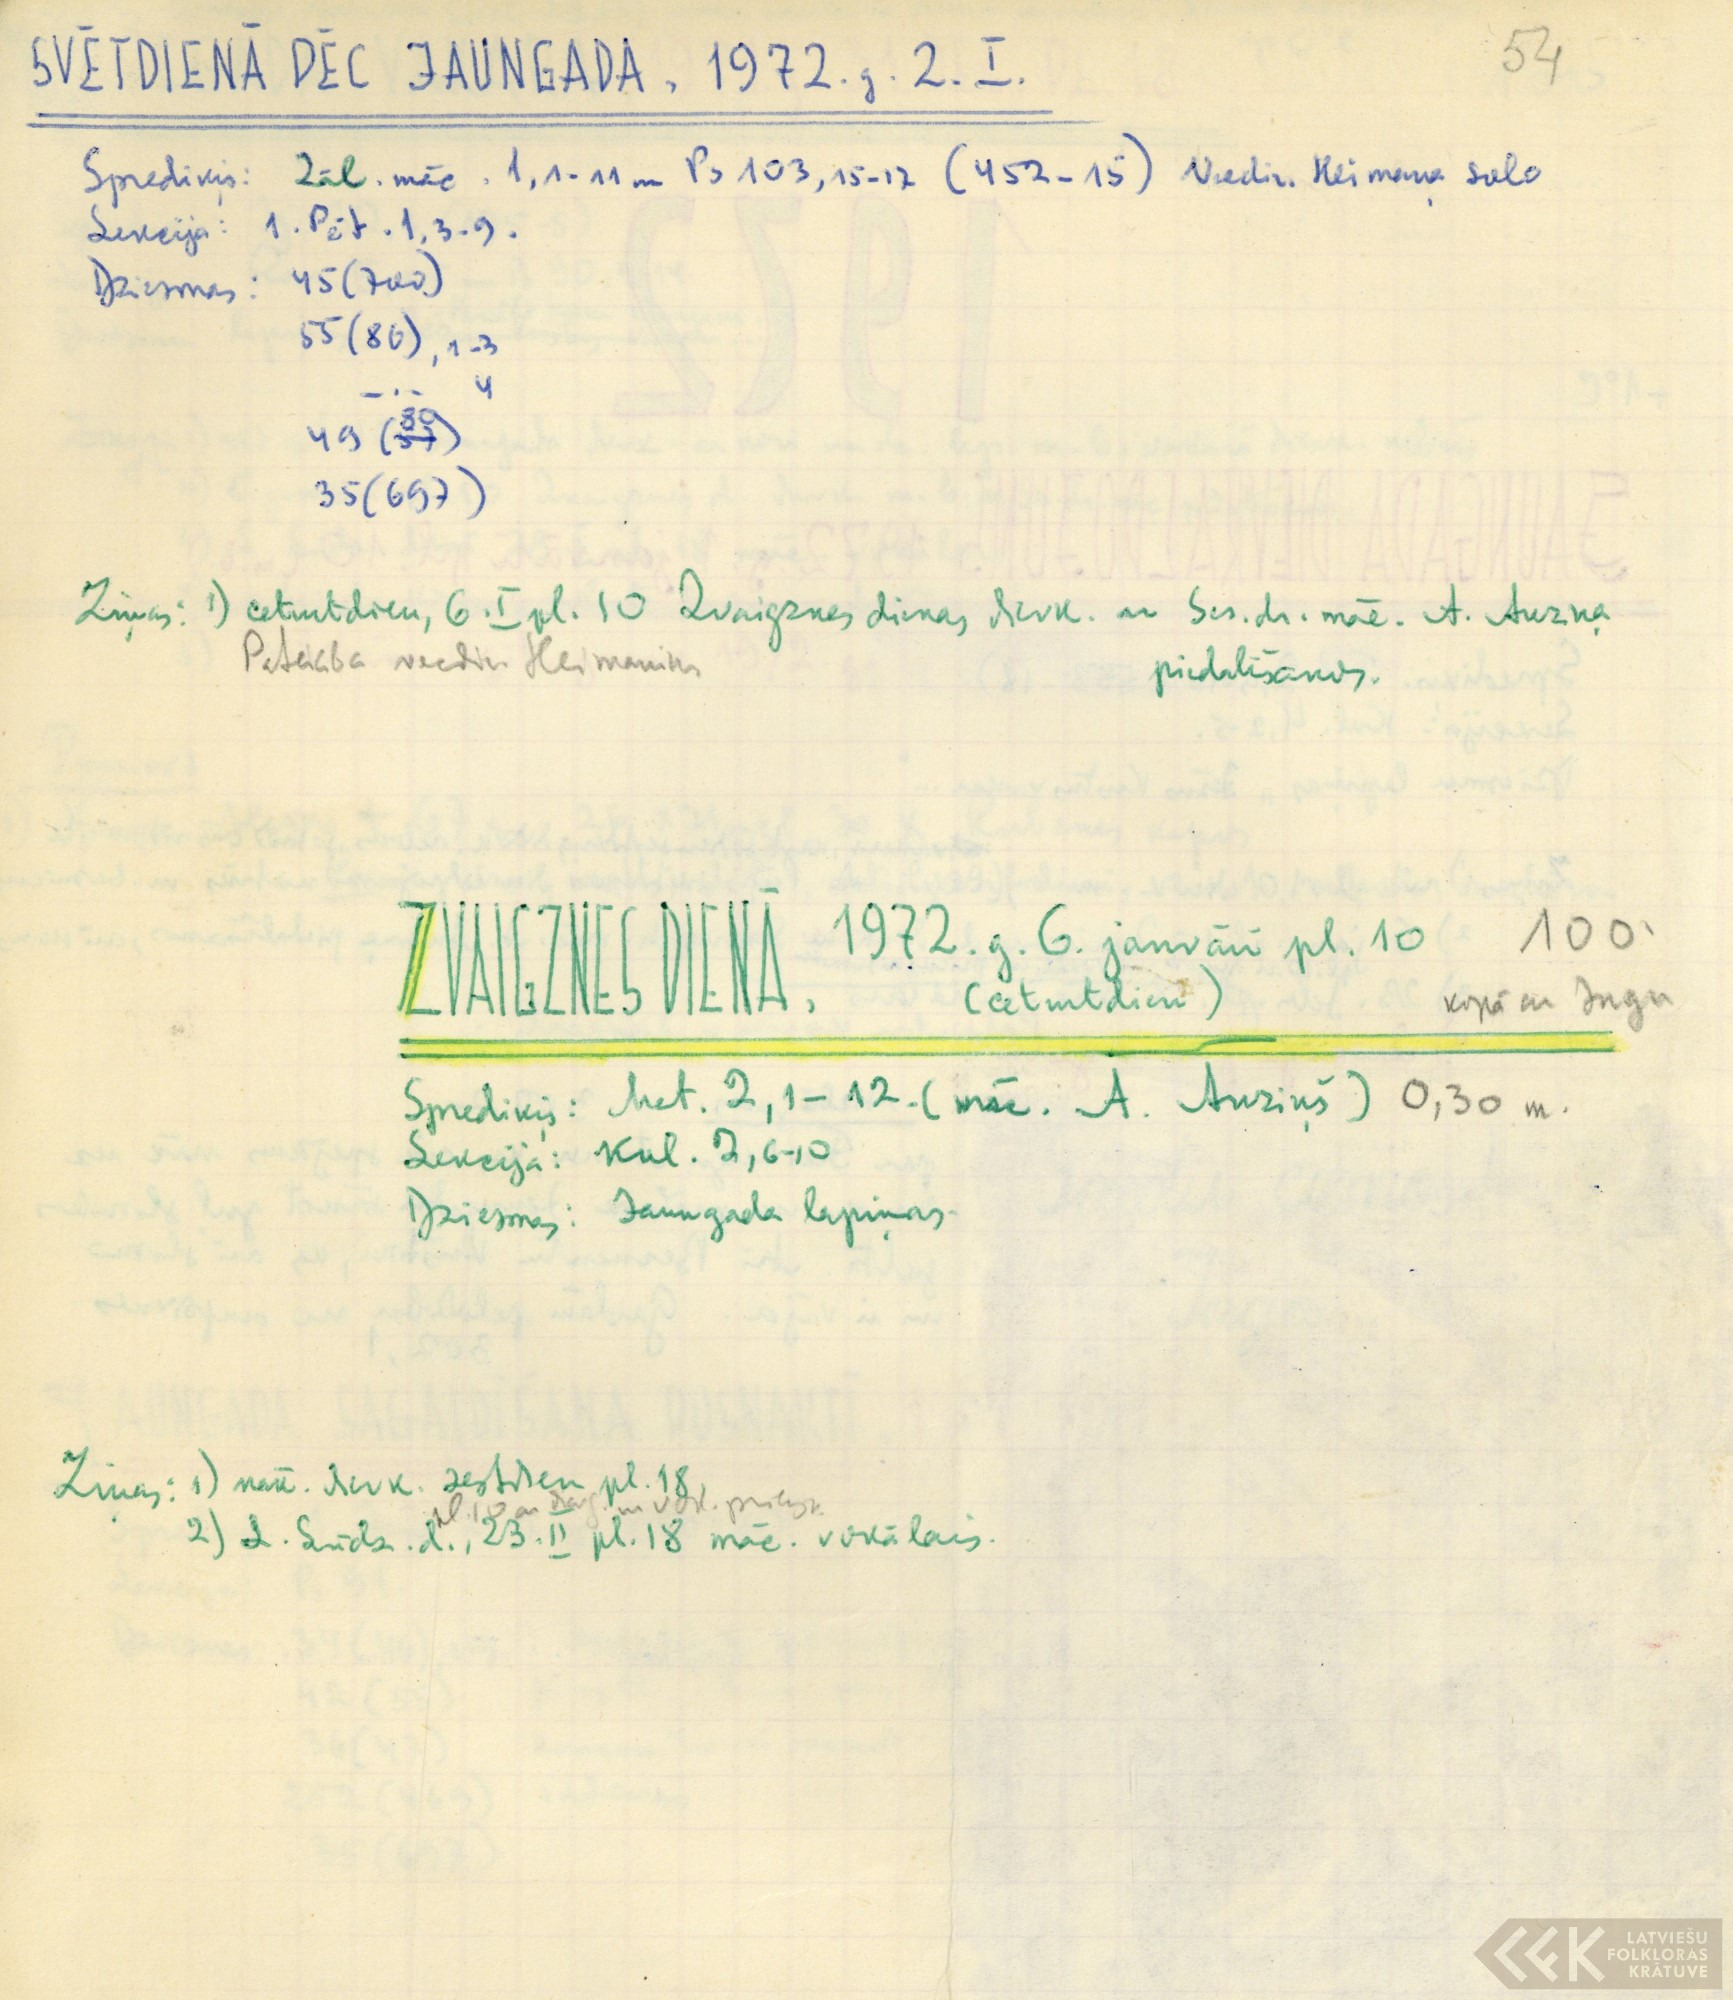 54
SVĒTDIENĀ PĒC JAUNGADA, 1972. g. 2. I.
Sprediķis: Zāl. māc. 1, 1-11 un Ps 103, 15-17 (452-15) Viesdir. Heimaņa solo
Lekcija: 1. Pēt. 1, 3-9.
Dziesmas: 45 (700)
55 (86), 1-3
-..- 4
49 (80)
35 (697)
Ziņas: 1) ceturtdien, 6. I pl. 10 Zvaigznes dienas dievk. ar Ses. dr. māc. A. Auziņa
Pateicība viesdir. Heimanim
piedalīšanos.
ZVAIGZNES DIENĀ, 1972. g. 6. janvārī pl. 10 100
(ceturtdien) kopā ar Ingu
Sprediķis: Mat. 2, 1-12. (māc. A. Auziņš) 0,30 m.
Lekcija: Kol. 2, 6-10
Dziesmas: Jaungada lapiņas.
Ziņas: 1) nāk. dievk. sestdien pl. 18,
pl. 10 ar dievg. un
2) L. Lūdz. d., 23. II pl. 18 māc. vokālais.
LATVIEŠU
FOLKLORAS
KRĀTUVE